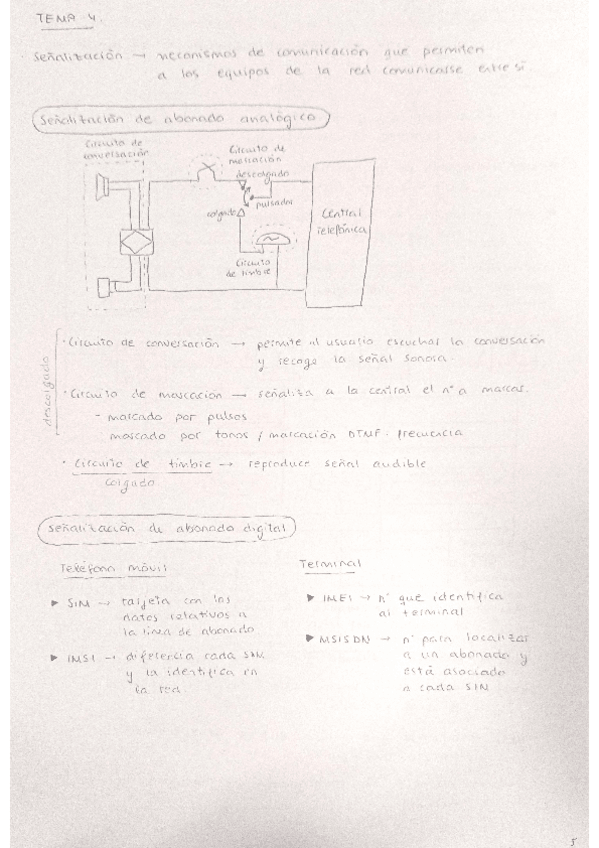 TEMA 4.
Señalización → mecanismos de comunicación que permiten
a los equipos de la red comunicarse entre sí.
Señalización de abonado analógico
Circuito de
conversación
Circuito de
marcación
descolgado
pulsador
colgado
Central
telefónica
Circuito
de timbre
descolgado
· Circuito de conversación → permite al usuario escuchar la conversación
y recoge la señal sonora.
· Circuito de marcación → señaliza a la central el nº a marcar.
- marcado por pulsos
marcado por tonos / marcación DTMF. frecuencia
· Circuito de timbre → reproduce señal audible
colgado
Señalización de abonado digital
Teléfono móvil
▶ SIM → tarjeta con los
datos relativos a
la línea de abonado
▶ IMSI → diferencia cada SIM
y la identifica en
la red.
Terminal
▶ IMEI → nº que identifica
al terminal
▶ MSISDN → nº para localizar
a un abonado y
está asociado
a cada SIM
5